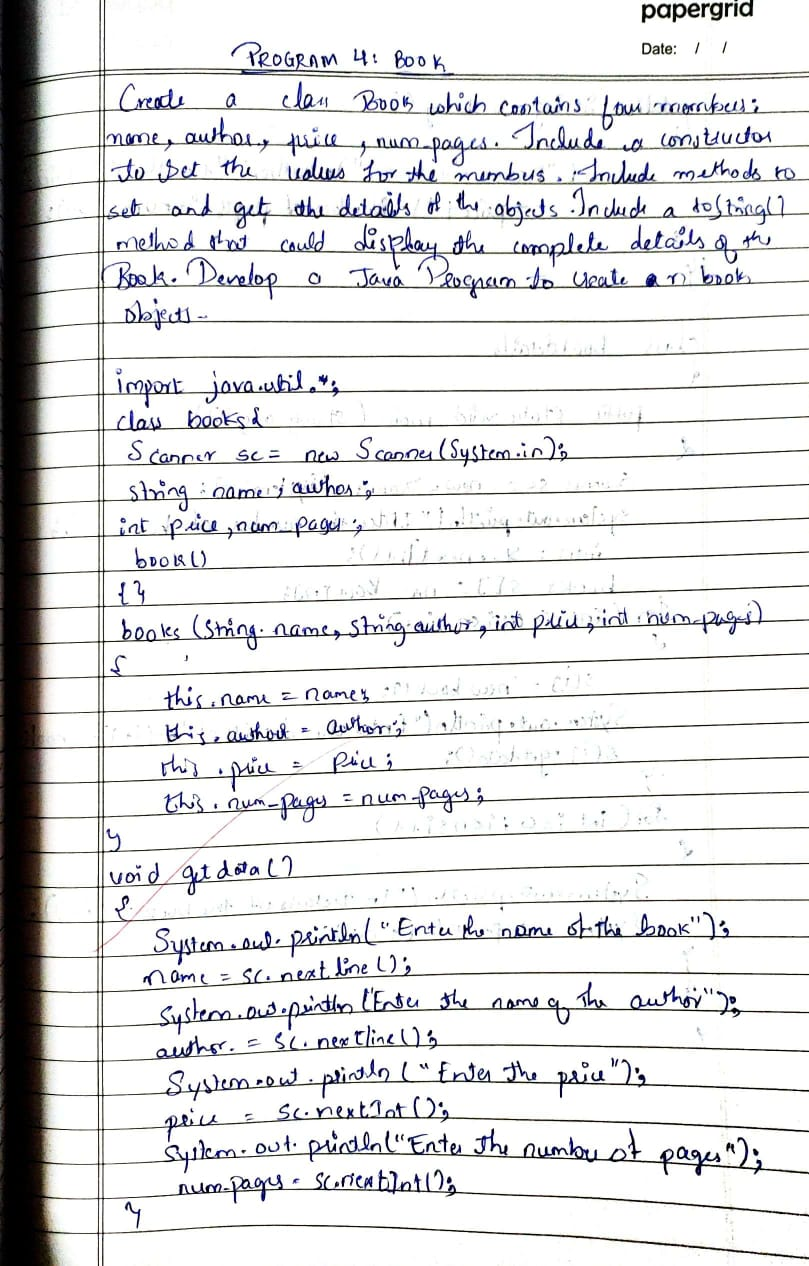 papergrid
Date: / /
PROGRAM 4: BOOK
Create a class Book which contains four members:
name, author, price, num-pages. Include a constructor
to set the values for the members. Include methods to
set and get the details of the objects. Include a toString()
method that could display the complete details of the
Book. Develop a Java Program to create a n book
objects.
import java.util.*;
class books{
Scanner sc = new Scanner(System.in);
string name; author;
int price, num pages;
book()
{}
books (String name, String author, int price, int num-pages)
{
this.name = name;
this.author = author;
this.price = price;
this.num-pages = num-pages;
}
void getdata()
{
System.out.println("Enter the name of the book");
name = sc.next line();
System.out.println("Enter the name of the author");
author. = sc.nextline();
System.out.println("Enter the price");
price = sc.nextInt();
System.out.println("Enter the number of pages");
num-pages = sc.nextInt();
}